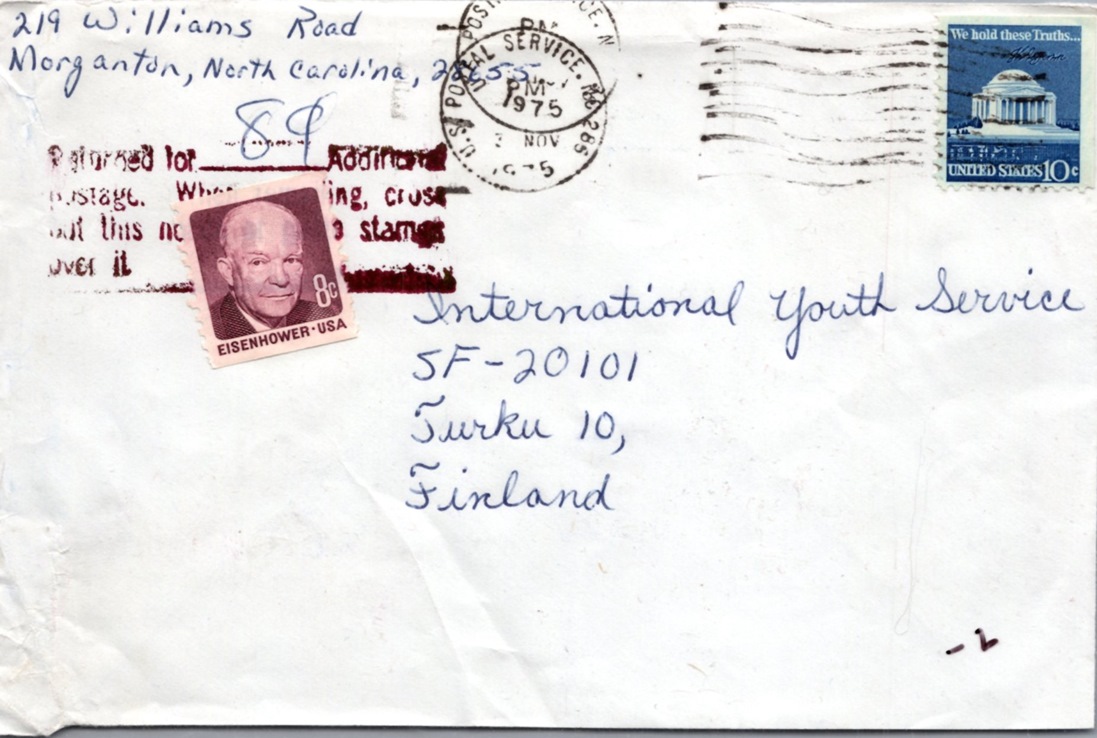 219 Williams Road
Morganton, North Carolina, 28655
U.S. POSTAL SERVICE, NC 286
PM
1975
PM
3 NOV
1975
We hold these Truths...
UNITED STATES 10c
8¢
Returned for Additional
postage. When ing, cross
out this no stamps
over it
8c
EISENHOWER·USA
International Youth Service
SF-20101
Turku 10,
Finland